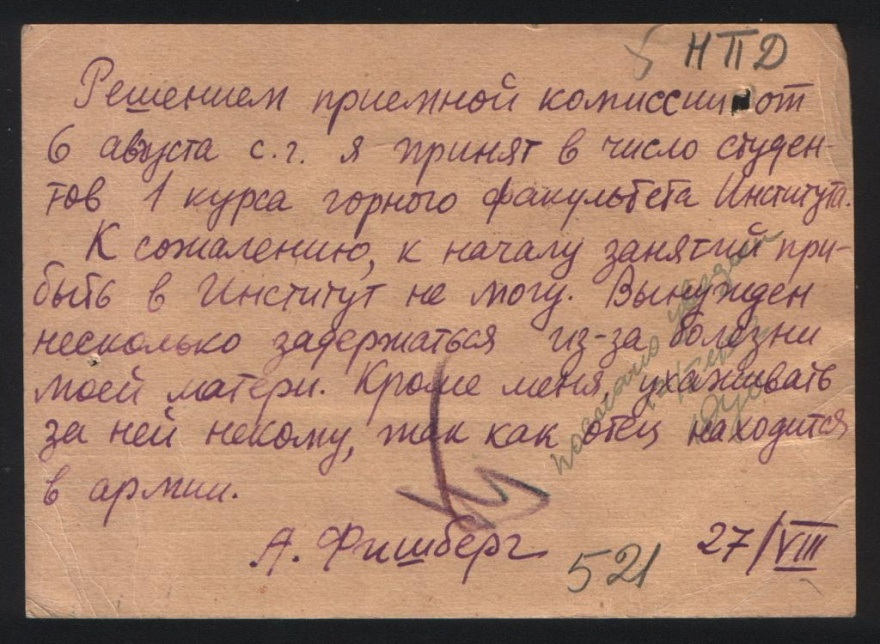 НПД
Решением приемной комиссии от
6 августа с.г. я принят в число студен-
тов 1 курса горного факультета Института.
К сожалению, к началу занятий при-
быть в Институт не могу. Вынужден
несколько задержаться из-за болезни
моей матери. Кроме меня, ухаживать
за ней некому, так как отец находится
в армии.
А. Фишберг 27/VIII
521